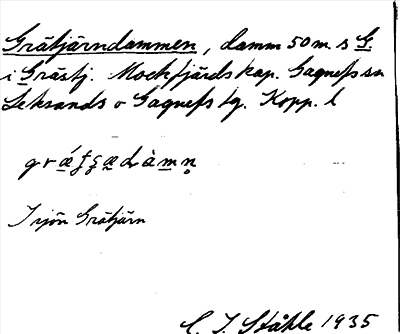 Grätjärndammen, damm 50 m. s G.
i Gräsbj. Mockfjärds kap. Gagnefs sn
Leksands o Gagnefs tg. Kopp. l
I sjön Grätjärn
C. I. Ståhle 1935